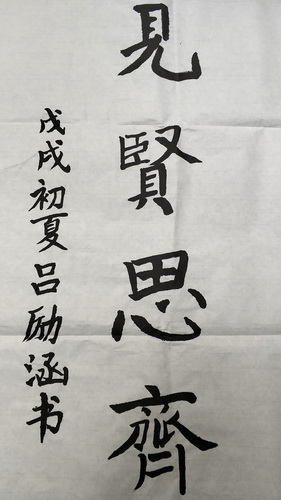 見賢思齊
戊戌初夏吕励涵书